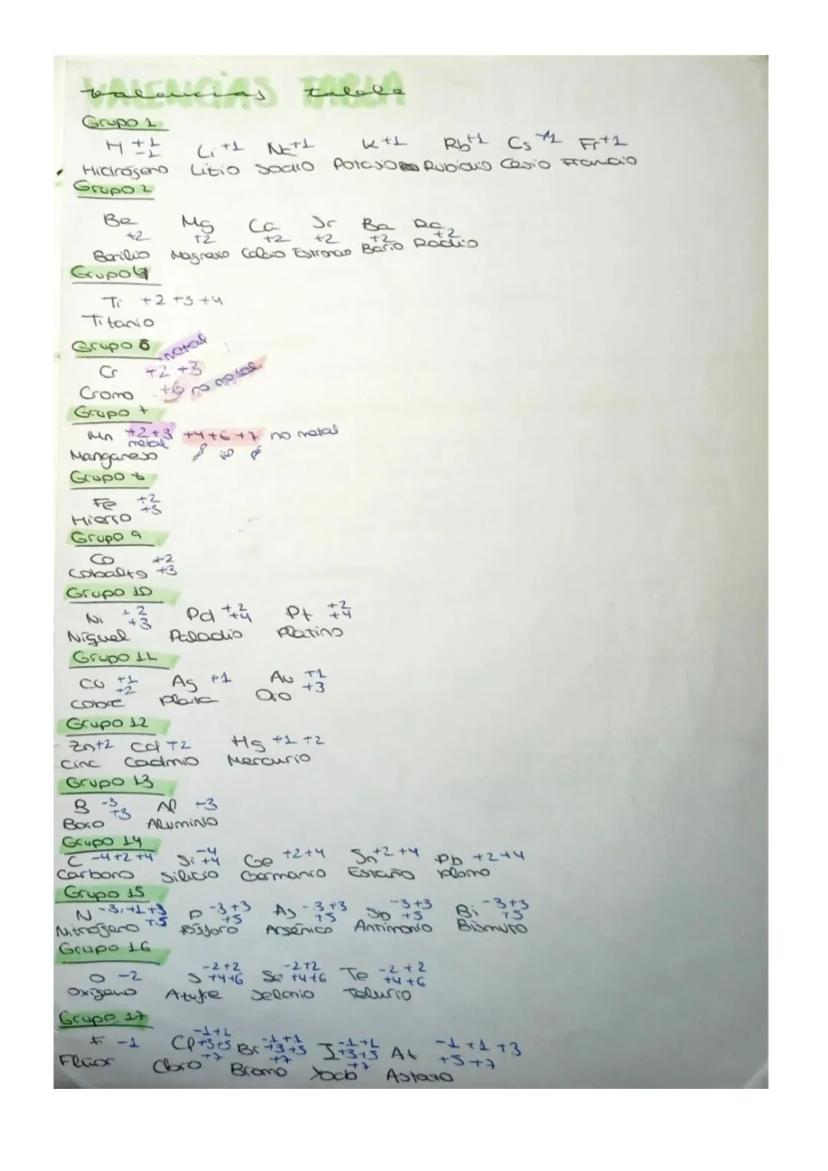 VALENCIAS TABLA
Valencias tabla
Grupo 1
H +1 -1 Li +1 Na +1 K +1 Rb +1 Cs +1 Fr +1
Hidrógeno Litio Sodio Potasio Rubidio Cesio Francio
Grupo 2
Be Mg Ca Sr Ba Ra
+2 +2 +2 +2 +2 +2
Berilio Magnesio Calcio Estroncio Bario Radio
Grupo 4
Ti +2 +3 +4
Titanio
Grupo 6 metal
Cr +2 +3
Cromo +6 no metal
Grupo 7
Mn +2 +3 +4 +6 +7 no metal
metal
Manganeso
Grupo 8
Fe +2 +3
Hierro
Grupo 9
Co +2
Cobalto +3
Grupo 10
Ni +2 +3 Pd +2 +4 Pt +2 +4
Níquel Paladio Platino
Grupo 11
Cu +1 +2 Ag +1 Au +1 +3
Cobre Plata Oro
Grupo 12
Zn +2 Cd +2 Hg +1 +2
Cinc Cadmio Mercurio
Grupo 13
B -3 +3 Al +3
Boro Aluminio
Grupo 14
C -4 +2 +4 Si -4 +4 Ge +2 +4 Sn +2 +4 Pb +2 +4
Carbono Silicio Germanio Estaño Plomo
Grupo 15
N -3 +1 +3 +5 P -3 +3 +5 As -3 +3 +5 Sb -3 +3 +5 Bi -3 +3 +5
Nitrógeno Fósforo Arsénico Antimonio Bismuto
Grupo 16
O -2 S -2 +2 +4 +6 Se -2 +2 +4 +6 Te -2 +2 +4 +6
Oxígeno Azufre Selenio Telurio
Grupo 17
F -1 Cl -1 +1 +3 +5 +7 Br -1 +1 +3 +5 +7 I -1 +1 +3 +5 +7 At -1 +1 +3 +5 +7
Flúor Cloro Bromo Yodo Astato